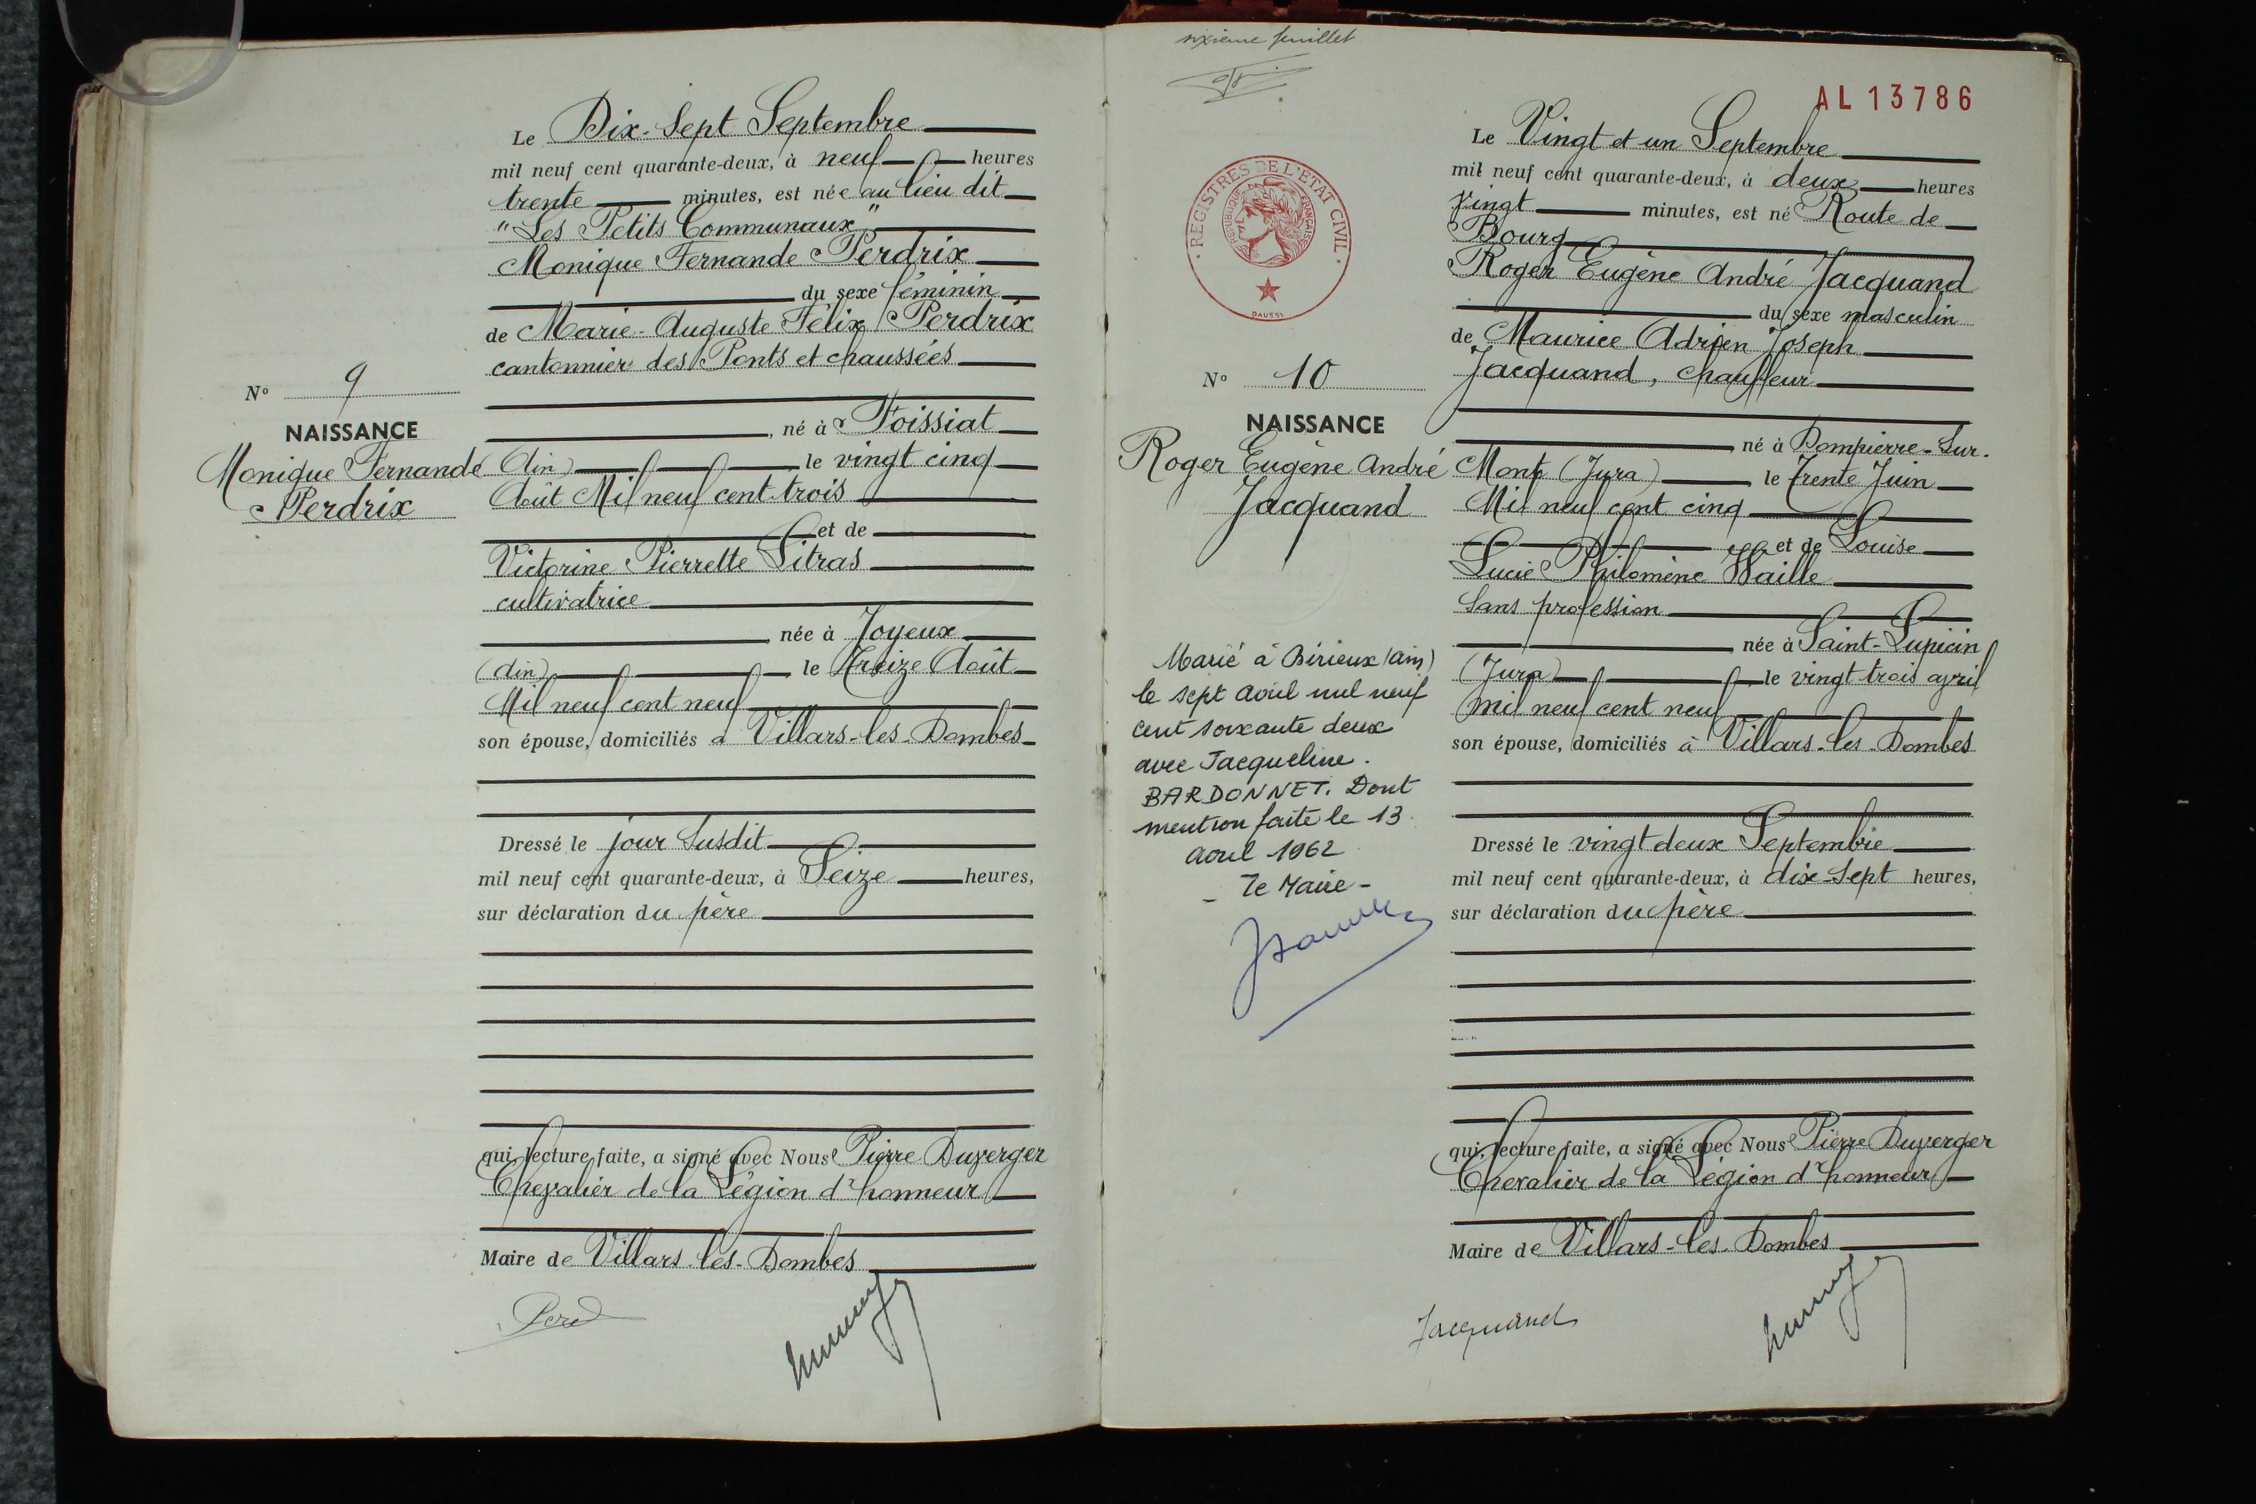 Le Dix-Sept Septembre
mil neuf cent quarante-deux, à neuf heures
trente minutes, est née au lieu dit
"Les Petits Communaux"
Monique Fernande Perdrix
du sexe féminin
de Marie-Auguste Félix Perdrix
cantonnier des Ponts et chaussées
N° 9
NAISSANCE
Monique Fernande
Perdrix
, né à Foissiat
(Ain) le vingt cinq
Août Mil neuf cent trois
et de
Victorine Pierrette Litras
cultivatrice
née à Joyeux
(Ain) le Treize Août
Mil neuf cent neuf
son épouse, domiciliés à Villars-les-Dombes
Dressé le jour susdit
mil neuf cent quarante-deux, à Seize heures,
sur déclaration du père
qui, lecture faite, a signé avec Nous Pierre Duverger
Chevalier de la Légion d'honneur
Maire de Villars-les-Dombes
Perd
sixième feuillet
AL 13786
REGISTRES DE L'ETAT CIVIL
REPUBLIQUE FRANÇAISE
DAUSSY
Le Vingt et un Septembre
mil neuf cent quarante-deux, à deux heures
vingt minutes, est né Route de
Bourg
Roger Eugène André Jacquand
du sexe masculin
de Maurice Adrien Joseph
Jacquand, chauffeur
N° 10
NAISSANCE
Roger Eugène André
Jacquand
né à Dompierre-sur-
Mont (Jura) le Trente Juin
Mil neuf cent cinq
et de Louise
Lucie Philomène Waille
sans profession
née à Saint-Lupicin
(Jura) le vingt trois avril
mil neuf cent neuf
son épouse, domiciliés à Villars-les-Dombes
Marié à Birieux (Ain)
le sept avril mil neuf
cent soixante deux
avec Jacqueline
BARDONNET. Dont
mention faite le 13
avril 1962
- Le Maire -
Dressé le vingt deux Septembre
mil neuf cent quarante-deux, à dix-sept heures,
sur déclaration du père
qui, lecture faite, a signé avec Nous Pierre Duverger
Chevalier de la Légion d'honneur
Maire de Villars-les-Dombes
Jacquand